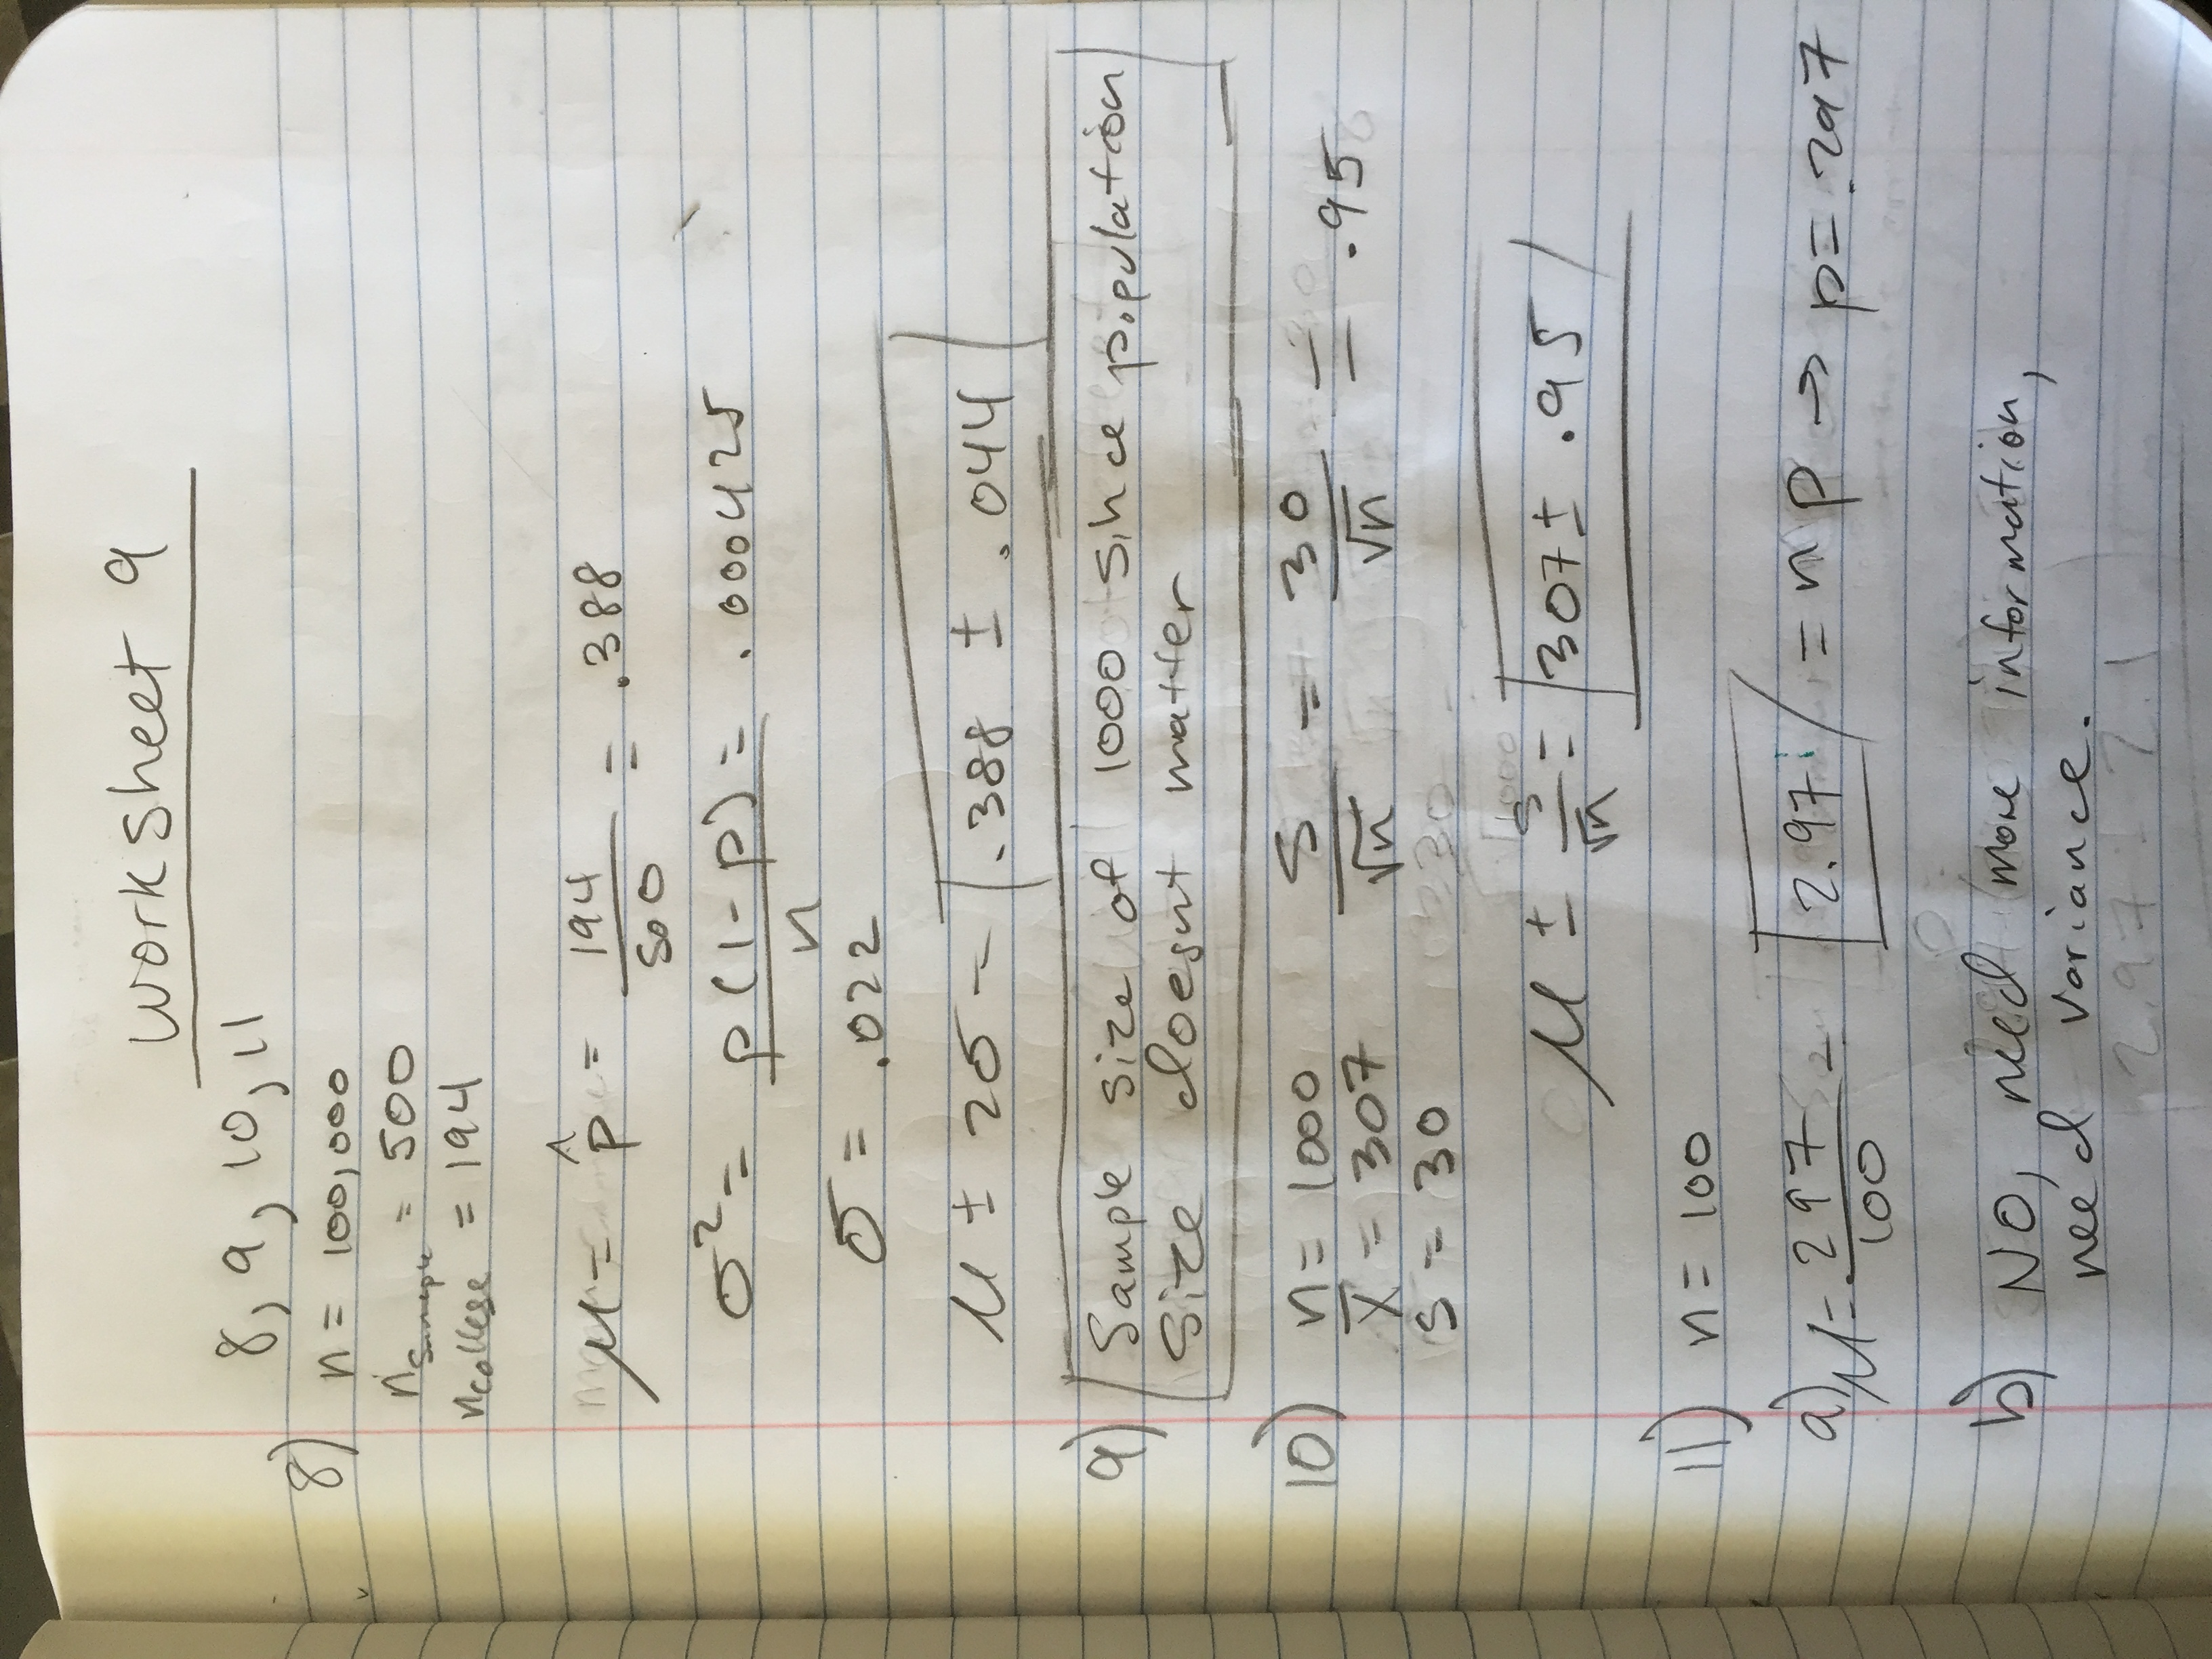 Worksheet 9
8, 9, 10, 11
8)
n = 100,000
n sample = 500
n college = 194
μ = p̂ = 194/500 = .388
σ² = p(1-p)/n = .000425
σ = .022
μ ± 2σ = .388 ± .044
9) Sample size of 1000 since population
size doesnt matter
10) n = 1000 s/√n = 30/√n = .95
x̄ = 307
s = 30
μ ± s/√n = 307 ± .95
11) n = 100
a) μ = 297/100 = 2.97 = np → p = .297
b) NO, need more information,
need variance.
2.97 - 2.1